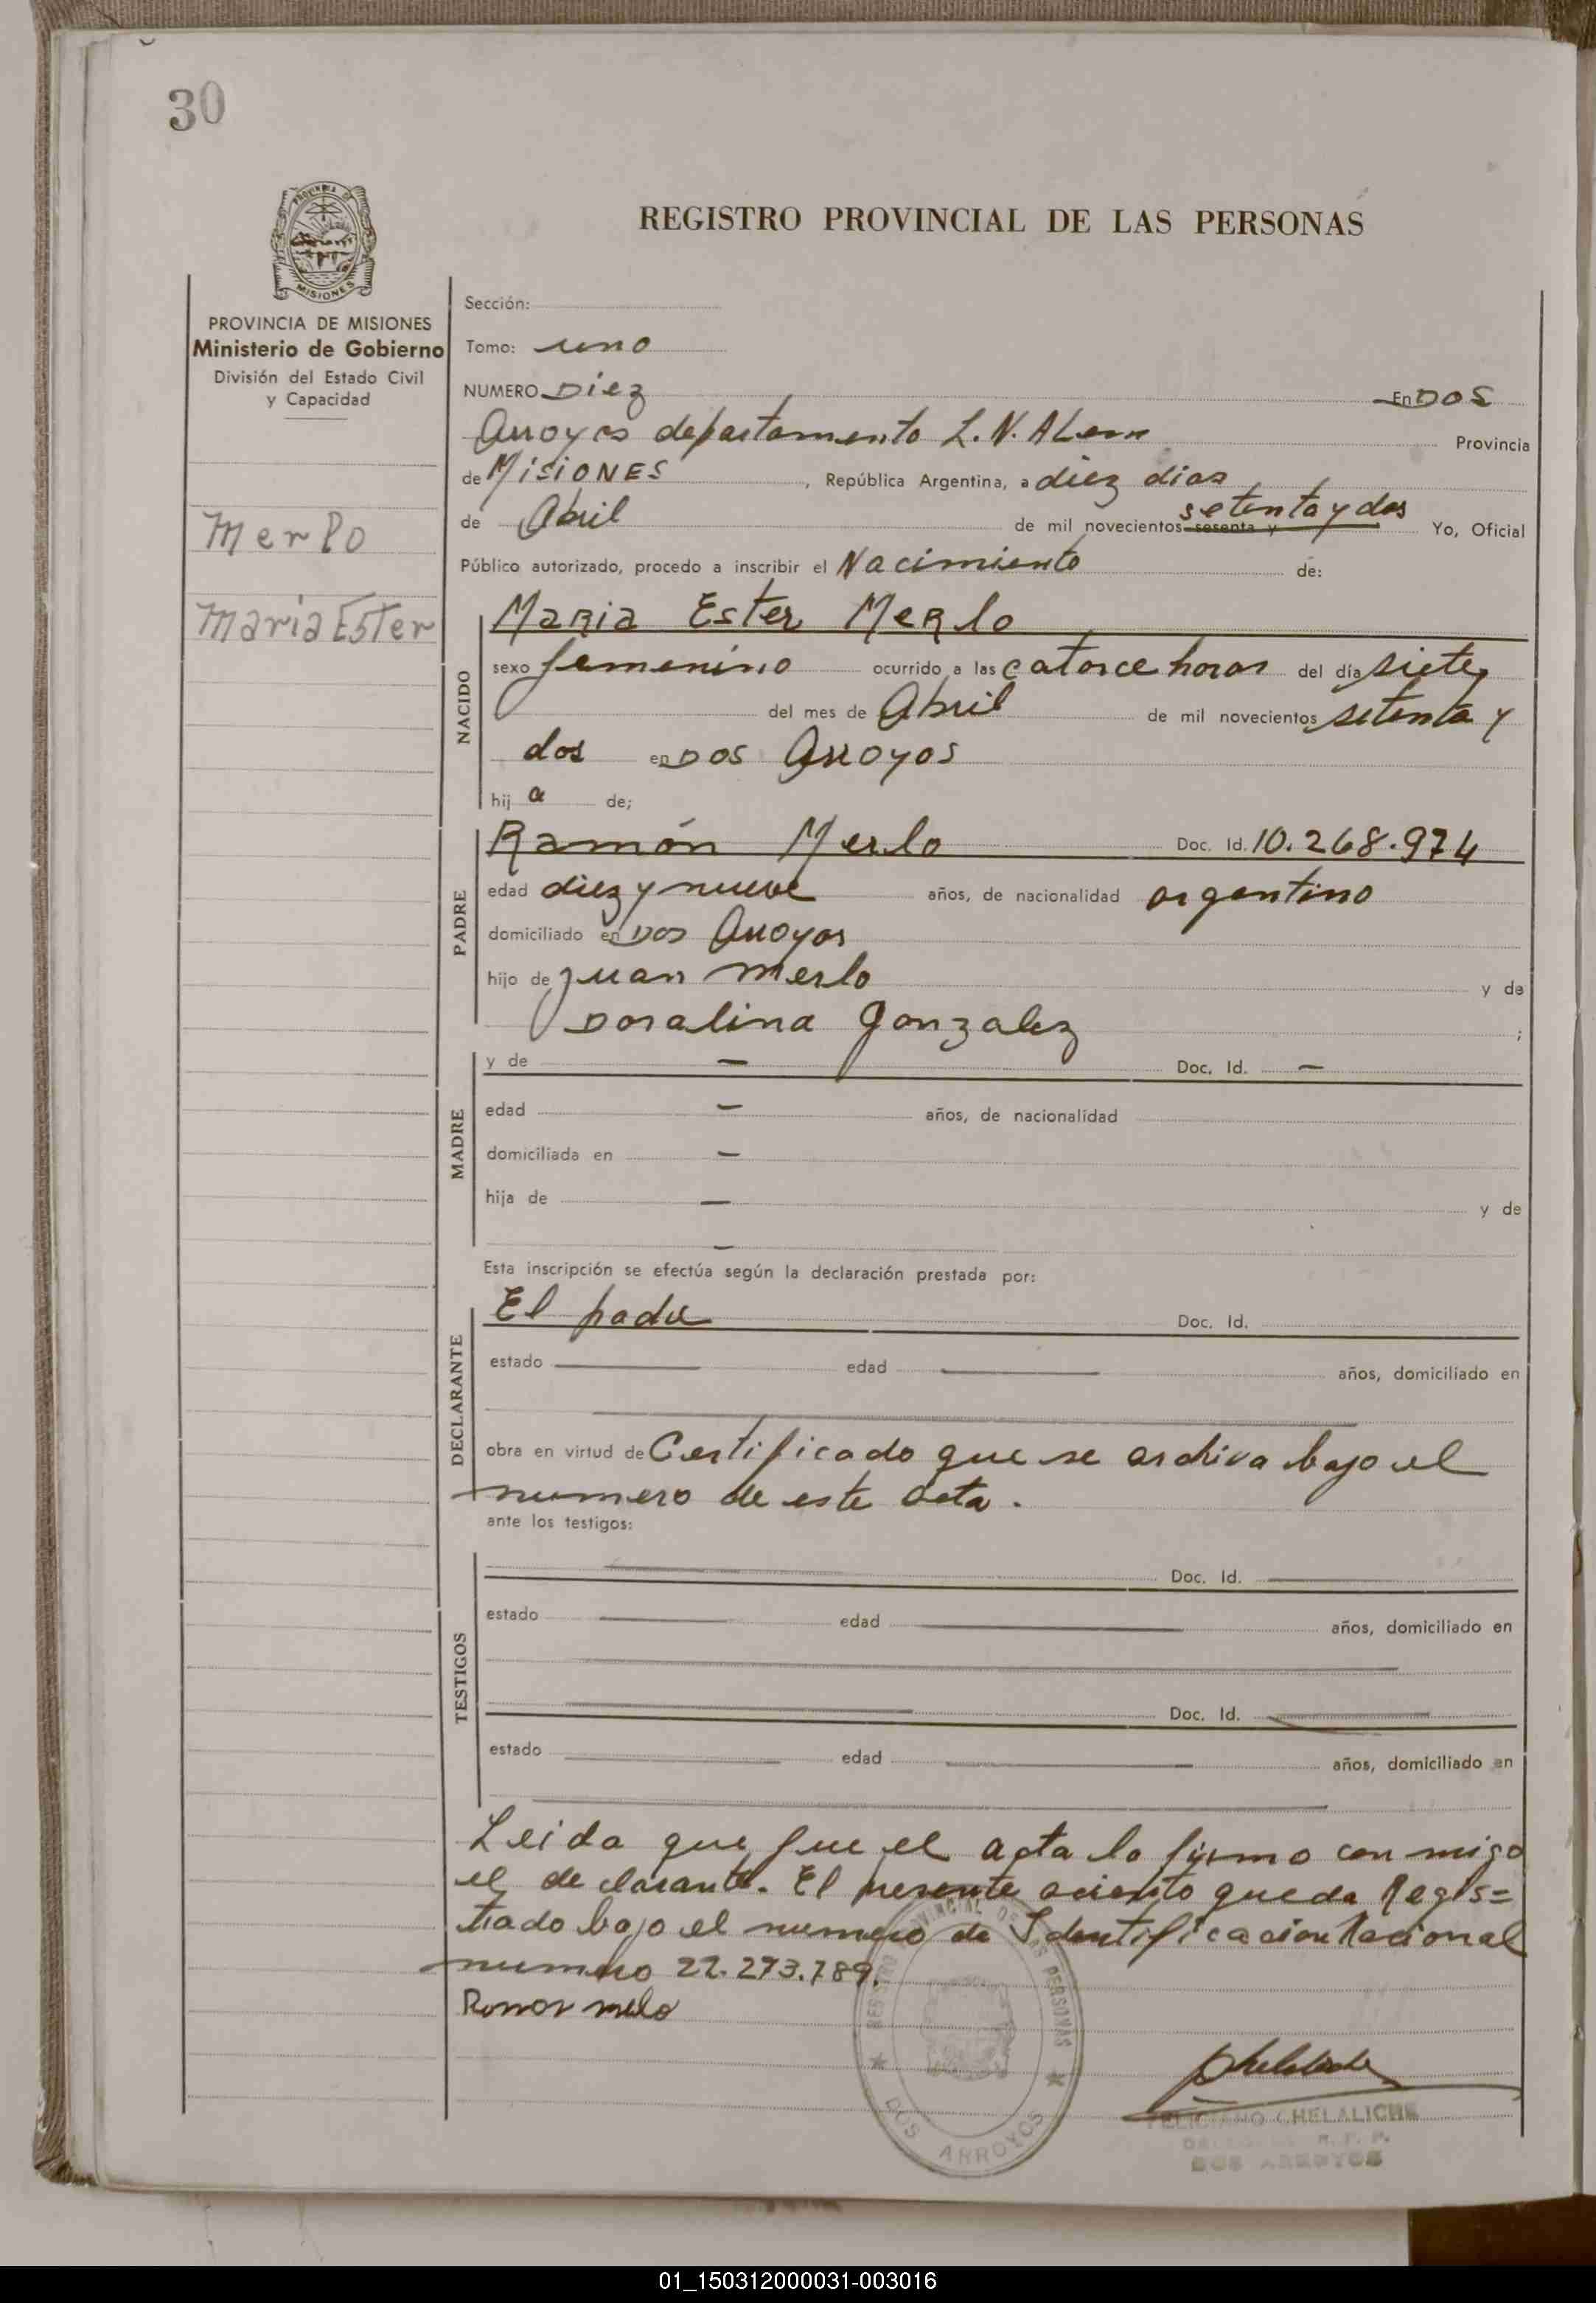 30
PROVINCIA DE MISIONES
REGISTRO PROVINCIAL DE LAS PERSONAS
PROVINCIA DE MISIONES
Ministerio de Gobierno
División del Estado Civil
y Capacidad
Merlo
Maria Ester
Sección:
Tomo: uno
NUMERO Diez En Dos
Arroyos departamento L.N. ALem Provincia
de MISIONES, República Argentina, a diez dias
de Abril de mil novecientos sesenta y setenta y dos Yo, Oficial
Público autorizado, procedo a inscribir el Nacimiento de:
NACIDO
Maria Ester Merlo
sexo femenino ocurrido a las catorce horas del día siete
del mes de Abril de mil novecientos setenta y
dos en Dos Arroyos
hij a de;
PADRE
Ramón Merlo Doc. Id. 10.268.974
edad diez y nueve años, de nacionalidad argentino
domiciliado en Dos Arroyos
hijo de Juan Merlo y de
Doralina Gonzalez ;
MADRE
y de — Doc. Id. —
edad — años, de nacionalidad
domiciliada en —
hija de — y de
—
Esta inscripción se efectúa según la declaración prestada por:
DECLARANTE
El padre Doc. Id.
estado — edad — años, domiciliado en
obra en virtud de Certificado que se archiva bajo el
numero de este acta.
ante los testigos:
TESTIGOS
Doc. Id. —
estado — edad — años, domiciliado en
Doc. Id. —
estado — edad — años, domiciliado en
Leida que fue el acta la firmo con migo
el declarante. El presente aciento queda Regis=
trado bajo el numero de Identificacion Nacional
numero 22.273.789.
Ramon Merlo
REGISTRO PROVINCIAL DE LAS PERSONAS
DOS ARROYOS
FELICIANO CHELALICHE
R. P. P.
DOS ARROYOS
01_150312000031-003016